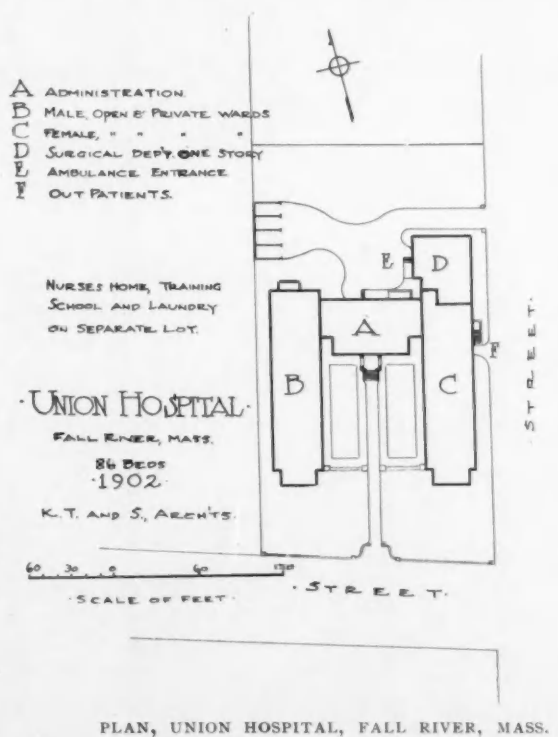 A ADMINISTRATION
B MALE, OPEN & PRIVATE WARDS
C FEMALE, " " " "
D SURGICAL DEP'T. ONE STORY
E AMBULANCE ENTRANCE
F OUT PATIENTS.
NURSES HOME, TRAINING
SCHOOL AND LAUNDRY
ON SEPARATE LOT.
· UNION HOSPITAL ·
FALL RIVER, MASS.
86 BEDS
· 1902 ·
K. T. AND S., ARCH'TS.
E
D
A
F
B
C
STREET.
60 30 0 60 120
· SCALE OF FEET ·
· STREET ·
PLAN, UNION HOSPITAL, FALL RIVER, MASS.